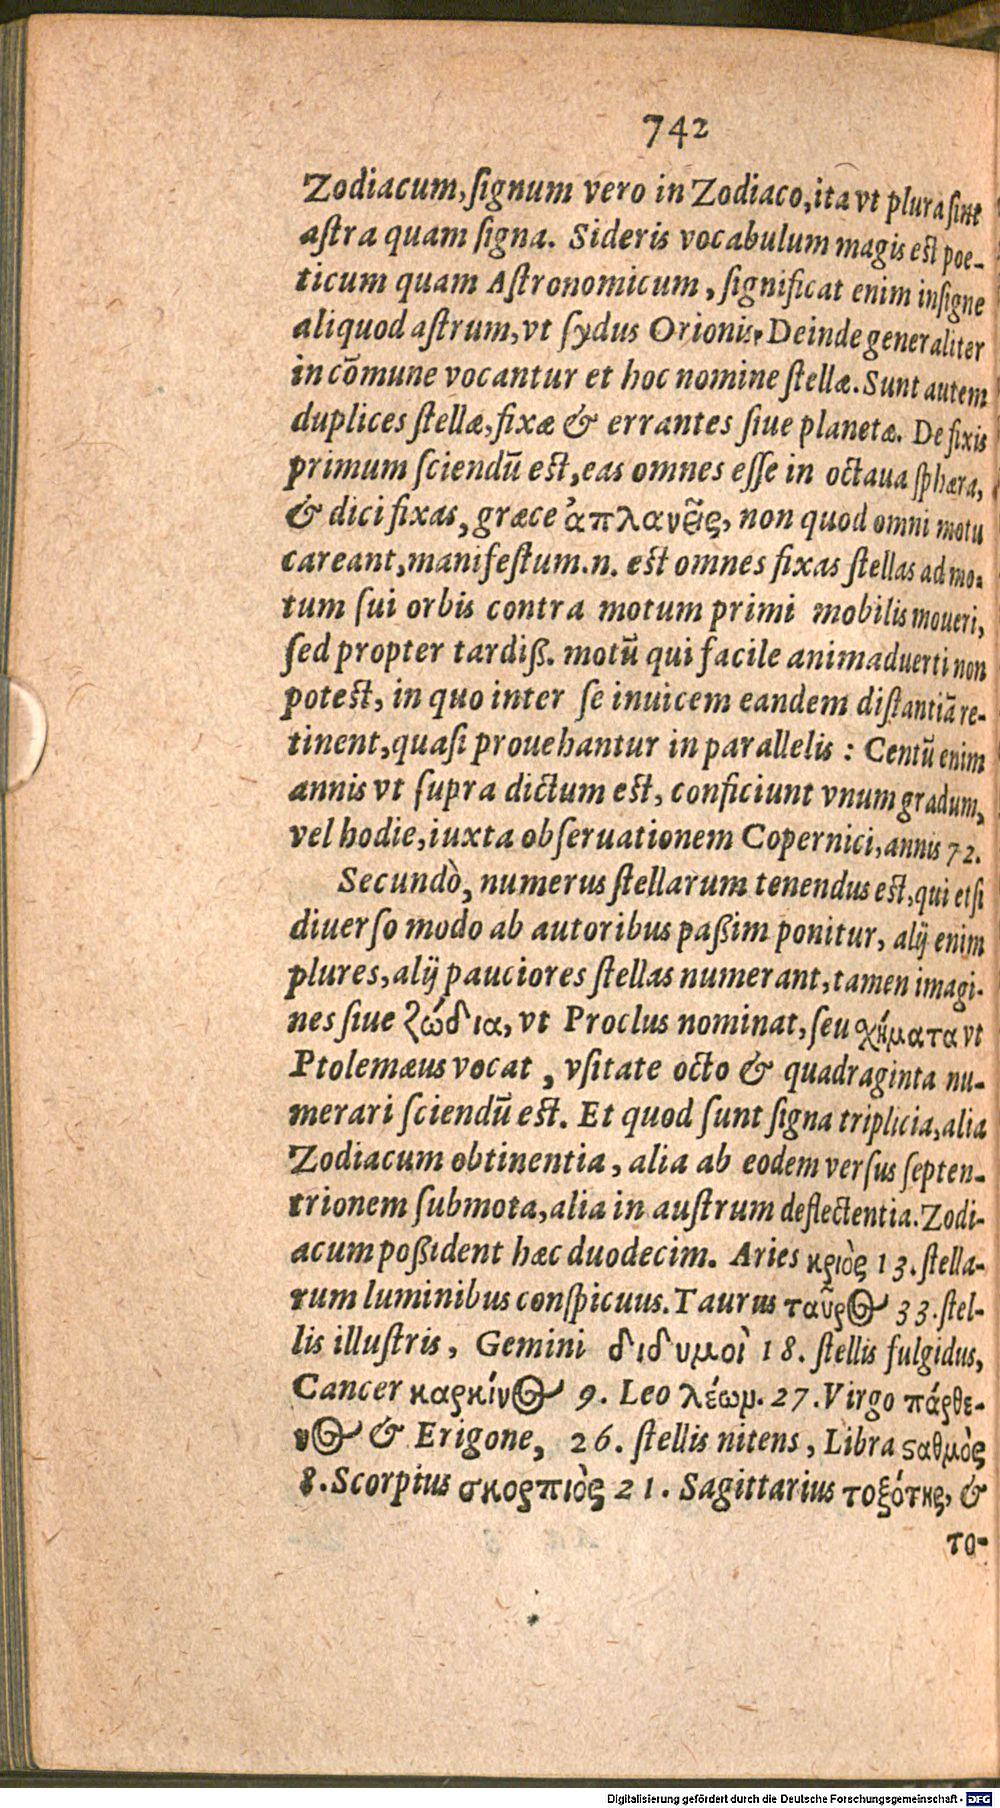 742
Zodiacum, ſignum vero in Zodiaco, ita vt plura ſint
aſtra quam ſigna. Sideris vocabulum magis eſt poe-
ticum quam Aſtronomicum, ſignificat enim inſigne
aliquod aſtrum, vt ſydus Orionis. Deinde generaliter
in cōmune vocantur et hoc nomine ſtellæ. Sunt autem
duplices ſtellæ, fixæ & errantes ſiue planetæ. De fixis
primum ſciendū eſt, eas omnes eſſe in octaua ſphæra,
& dici fixas, græce ἀπλανεῖς, non quod omni motu
careant, manifeſtum .n. eſt omnes fixas ſtellas ad mo-
tum ſui orbis contra motum primi mobilis moueri,
ſed propter tardiß. motū qui facile animaduerti non
poteſt, in quo inter ſe inuicem eandem diſtantiā re-
tinent, quaſi prouehantur in parallelis : Centū enim
annis vt ſupra dictum eſt, conficiunt vnum gradum,
vel hodie, iuxta obſeruationem Copernici, annis 72.
Secundò, numerus ſtellarum tenendus eſt, qui etſi
diuerſo modo ab autoribus paßim ponitur, alij enim
plures, alij pauciores ſtellas numerant, tamen imagi-
nes ſiue ζώδια, vt Proclus nominat, ſeu χήματα vt
Ptolemæus vocat, vſitate octo & quadraginta nu-
merari ſciendū eſt. Et quod ſunt ſigna triplicia, alia
Zodiacum obtinentia, alia ab eodem verſus ſepten-
trionem ſubmota, alia in auſtrum deflectentia. Zodi-
acum poßident hæc duodecim. Aries κριὸς 13. ſtella-
rum luminibus conſpicuus. Taurus ταῦρος 33. ſtel-
lis illuſtris, Gemini διδυμοὶ 18. ſtellis fulgidus,
Cancer καρκίνος 9. Leo λέωμ. 27. Virgo πάρθε-
νος & Erigone, 26. ſtellis nitens, Libra ϛαθμὸς
8. Scorpius σκορπιὸς 21. Sagittarius τοξότης, &
το-
Digitalisierung gefördert durch die Deutsche Forschungsgemeinschaft - DFG